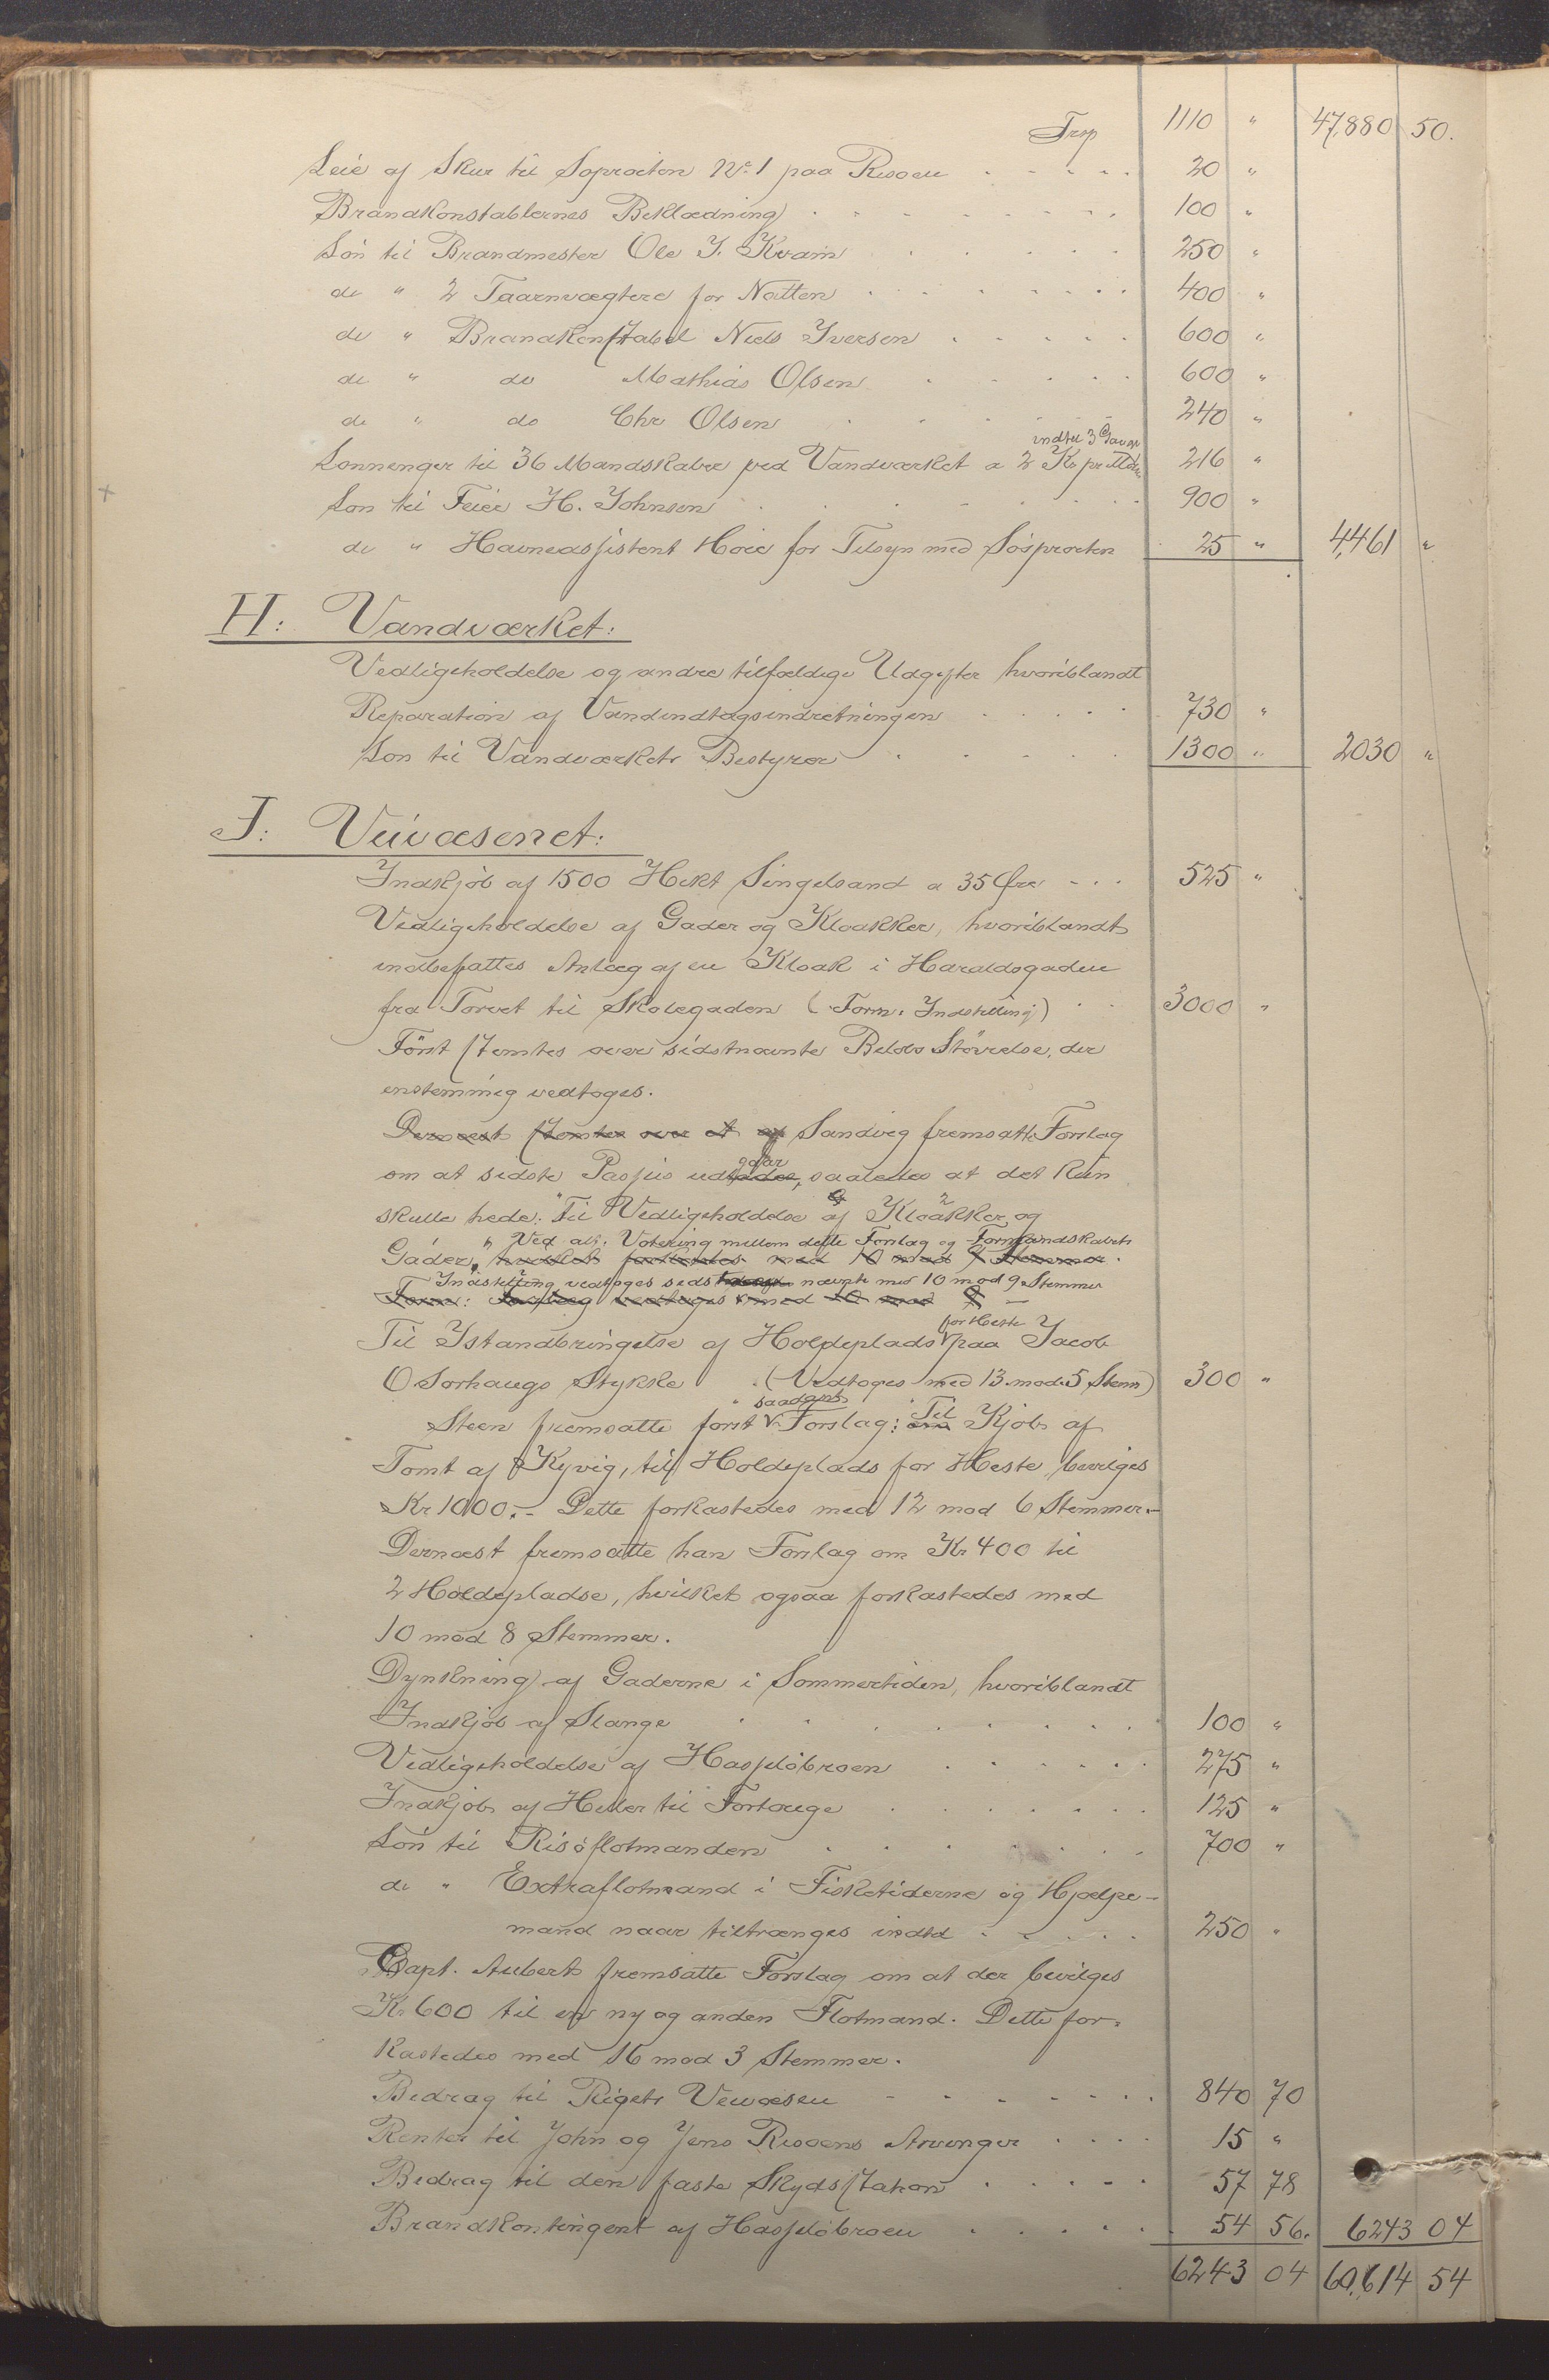 Trsp 1110 " 47,880 50.
Leie af Skur til Søsprøiten No 1 paa Risøen 20 "
Brandkonstablernes Beklædning 100 "
Løn til Brandmester Ole J. Kvam 250 "
do " 2 Taarnvægtere for Natten 400 "
do " Brandkonstabel Niels Iversen 600 "
do " do Mathias Olsen 600 "
do " do Chr Olsen 240 "
indtil 3 Gange
Lønninger til 36 Mandskaber ved Vandværket a 2 Kr pr Md. 216 "
Løn til Feier H. Johnsen 900 "
do " Havneassistent Høie for Tilsyn med Søsprøiten 25 " 4,461 "
H: Vandværket:
Vedligeholdelse og andre tilfældige Udgifter hvoriblandt
Reparation af Vandindtagsindretningen 730 "
Løn til Vandværkets Bestyrer 1300 " 2030 "
I: Veivæsenet:
Indkjøb af 1500 Hekt Singelsand a 35 Øre 525 "
Vedligeholdelse af Gader og Kloakker, hvoriblandt
indbefattes Anlæg af en Kloak i Haraldsgaden
fra Torvet til Skolegaden (Form: Indstilling) 3000 "
Først stemtes over sidstnævnte Beløbs Størrelse, der
enstemmig vedtoges.
Dernæst stemtes over at af Sandvig fremsatte Forslag
om at sidste Passus udgaar, saaledes at det kun
skulle hede: "Til Vedligeholdelse af Kloakker og
Gader." Ved alt: Votering mellem dette Forslag og Formandskabets
hvilket forkastedes med 10 mod 9 Stemmer.
Indstilling vedtoges sidstnævnte med 10 mod 9 Stemmer
Form: Forslag vedtoges med 10 mod 9 —
for Heste
Til Istandbringelse af Holdeplads paa Jacob
O Sørhaugs Stykke (Vedtoges med 13 mod 5 Stem) 300 "
saadant
Steen fremsatte først Forslag: Til Kjøb af
Tomt af Kyvig, til Holdeplads for Heste bevilges
Kr 1000.- Dette forkastedes med 12 mod 6 Stemmer.-
Dernæst fremsatte han Forslag om Kr 400 til
2 Holdepladse, hvilket ogsaa forkastedes med
10 mod 8 Stemmer.
Dynkning af Gaderne i Sommertiden, hvoriblandt
Indkjøb af Slange 100 "
Vedligeholdelse af Hasseløbroen 275 "
Indkjøb af Heller til Fortauge 125 "
Løn til Risøflotmanden 700 "
do " Extraflotmand i Fisketiderne og Hjælpe-
mand naar tiltrænges indtil 250 "
Capt. Aubert fremsatte Forslag om at der bevilges
Kr 600 til en ny og anden Flotmand. Dette for-
kastedes med 16 mod 3 Stemmer.
Bidrag til Rigets Veivæsen 840 70
Renter til John og Jens Risøens Arvinger 15 "
Bidrag til den faste Skydsstation 57 78
Brandkontingent af Hasseløbroen 54 56. 6243 04
6243 04 60,614 54